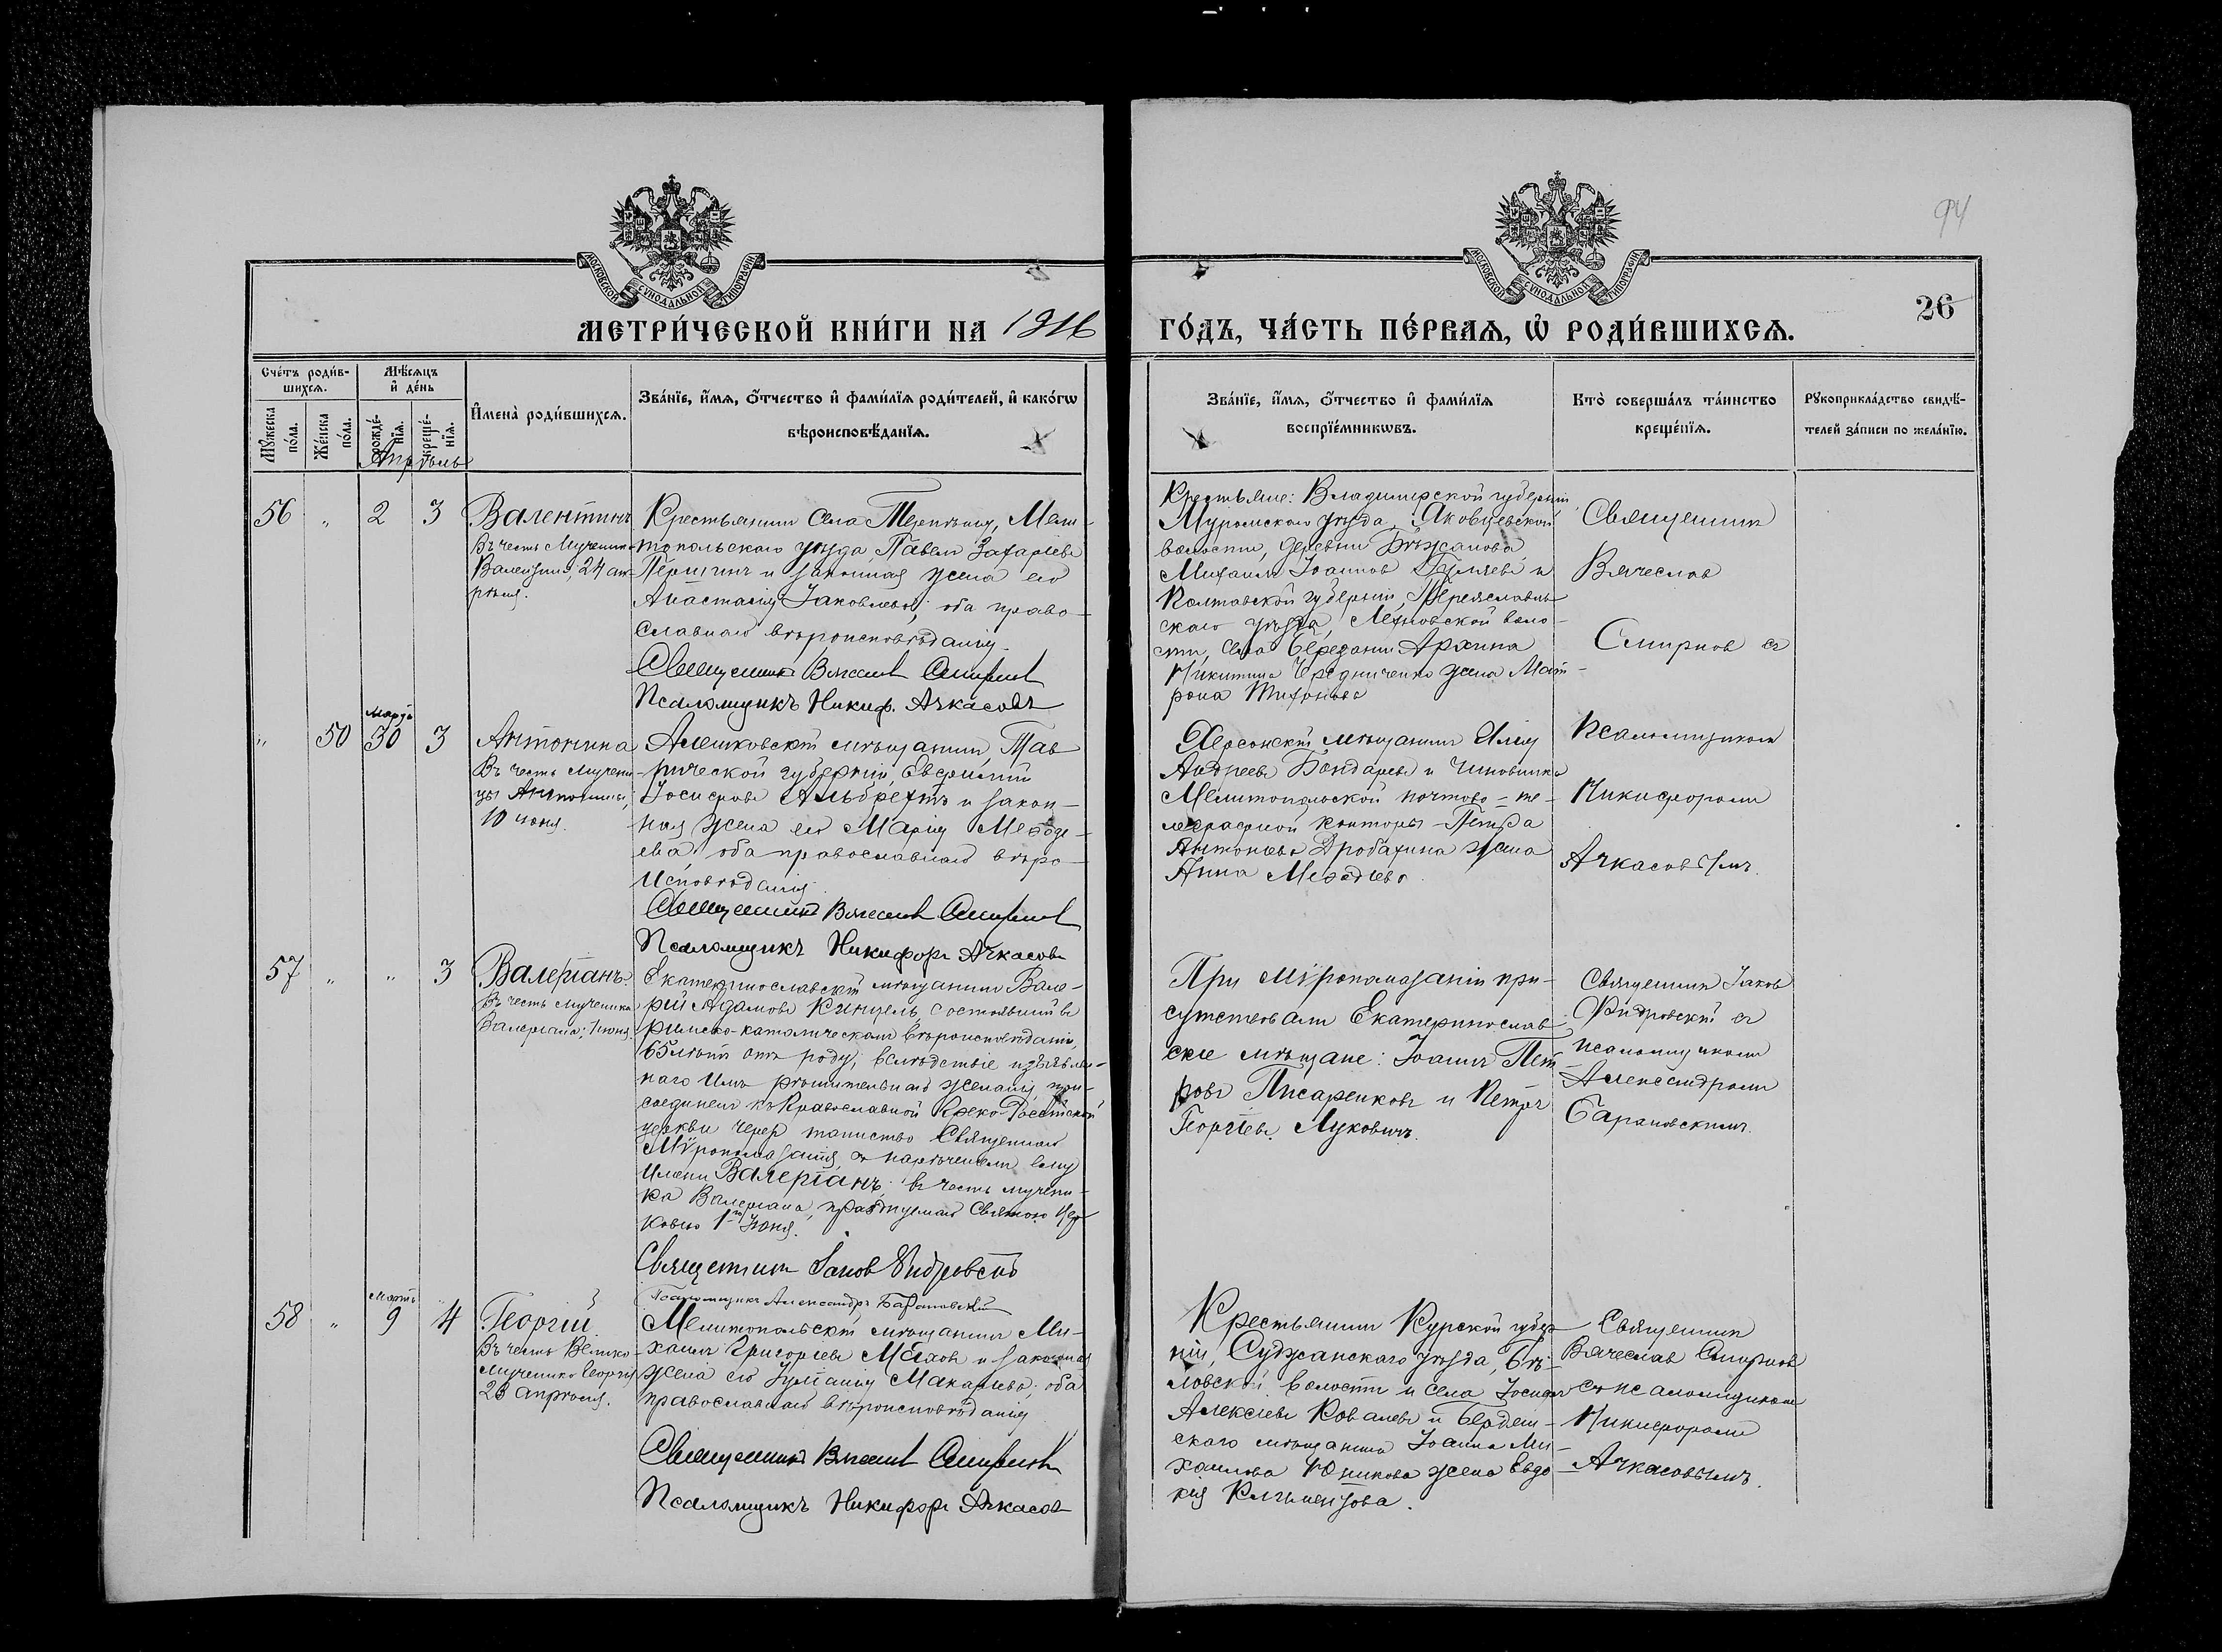 94
МОСКОВСКОЙ СѴНОДАЛЬНОЙ ТИПОГРАФІИ
МОСКОВСКОЙ СѴНОДАЛЬНОЙ ТИПОГРАФІИ
26
МЕТРИ́ЧЕСКОЙ КНИ́ГИ НА 1916
ГО́ДЪ, ЧА́СТЬ ПЕ́РВАѦ, Ѡ҆ РОДИ́ВШИХСѦ.
Сче́тъ роди́в-
шихсѧ.
Мѣ́сѧцъ
и҆ де́нь
Мꙋ́жеска
по́ла.
Же́нска
по́ла.
рожде́-
нїѧ.
креще́-
нїѧ.
И҆мена̀ роди́вшихсѧ.
Зва́нїе, и҆́мѧ, ѻ҆́тчество и҆ фами́лїѧ роди́телей, и҆ како́гѡ
вѣроисповѣ́данїѧ.
Зва́нїе, и҆́мѧ, ѻ҆́тчество и҆ фами́лїѧ
воспрїе́мникѡвъ.
Кто̀ соверша́лъ та́инство
креще́нїѧ.
Рꙋкоприкла́дство свидѣ́-
телей за́писи по жела́нїю.
Апрѣль
56 " 2 3
Валентинъ
Въ честь Мученика
Валентина, 24 ап-
рѣля.
Крестьянинъ села Терпѣнія, Мели-
топольскаго уѣзда, Павелъ Захаріевъ
и законная жена его
Анастасія Іаковлева; оба право-
славнаго вѣроисповѣданія.
Священникъ Вячеслав Смирнов
Псаломщикъ Никиф. Ачкасовъ
Крестьяне: Владимирской губерніи
Муромскаго уѣзда, Яковцевской
волости, деревни
Михаилъ Іоанновъ и
Полтавской губерніи, Переяславль-
скаго уѣзда, воло-
сти, села Архипа
Никитина Чередниченко жена Мат-
рона Тихонова
Священникъ
Вячеслав
Смирнов съ
" 50 Мартъ 30 3
Антонина
Въ честь Мучени-
цы Антонины,
10 июня.
Алешковскій мѣщанинъ, Тав-
рической губерніи, Евфимій
Іосифовъ Альбрехтъ и закон-
ная жена его Марія Меѳоді-
ева, оба православнаго вѣро-
исповѣданія.
Священникъ Вячеслав Смирнов
Псаломщикъ Никифоръ Ачкасовъ
Херсонскій мѣщанинъ Илія
Андреевъ Бондаревъ и чиновника
Мелитопольской почтово-те-
леграфной конторы Петра
Антоньева Дробахина жена
Анна Меѳодіева
Псаломщикомъ
Никифоромъ
Ачкасовымъ.
57 " " 3
Валеріанъ.
Въ честь мученика
Валеріана, 1 июня.
Екатеринославскій мѣщанинъ Вале-
рій Адамовъ Кинцель, состоявшій въ
римско-католическомъ вѣроисповѣданіи,
65 лѣтъ отъ роду, вслѣдствіе изъявлен-
наго имъ рѣшительнаго желанія при-
соединенъ къ Православной Греко-Россійской
церкви чрезъ таинство Священнаго
Мѵропомазанія, съ нареченіемъ ему
имени Валеріанъ, въ честь мучени-
ка Валеріана, празднуемаго Святою Цер-
ковью 1го Июня.
Священникъ Іаков Фидровскій
Псаломщикъ Александръ Барановскій
При мѵропомазаніи при-
сутствовали Екатеринослав-
скіе мѣщане: Іоаннъ Пет-
ровъ Писаренковъ и Петръ
Георгіевъ Луковичъ.
Священникъ Іаковъ
Фидровскій съ
псаломщикомъ
Александромъ
Барановскимъ.
58 " Мартъ 9 4
Георгій
Въ честь Велико-
мученика Георгія
23 апрѣля.
Мелитопольскій мѣщанинъ Ми-
хаилъ Григорьевъ Маховъ и законная
жена его Іуліанія Макарьева; оба
православнаго вѣроисповѣданія
Священникъ Вячеслав Смирнов
Псаломщикъ Никифоръ Ачкасов
Крестьянинъ Курской губер-
ніи, Суджанскаго уѣзда, Бѣ-
ловской волости и села Іосифъ
Алексіевъ Ковалевъ и Бердян-
скаго мѣщанина Іоанна Ми-
хаилова Юникова жена Евдо-
кія Климентова.
Священникъ
Вячеслав Смирновъ
съ псаломщикомъ
Никифоромъ
Ачкасовымъ.